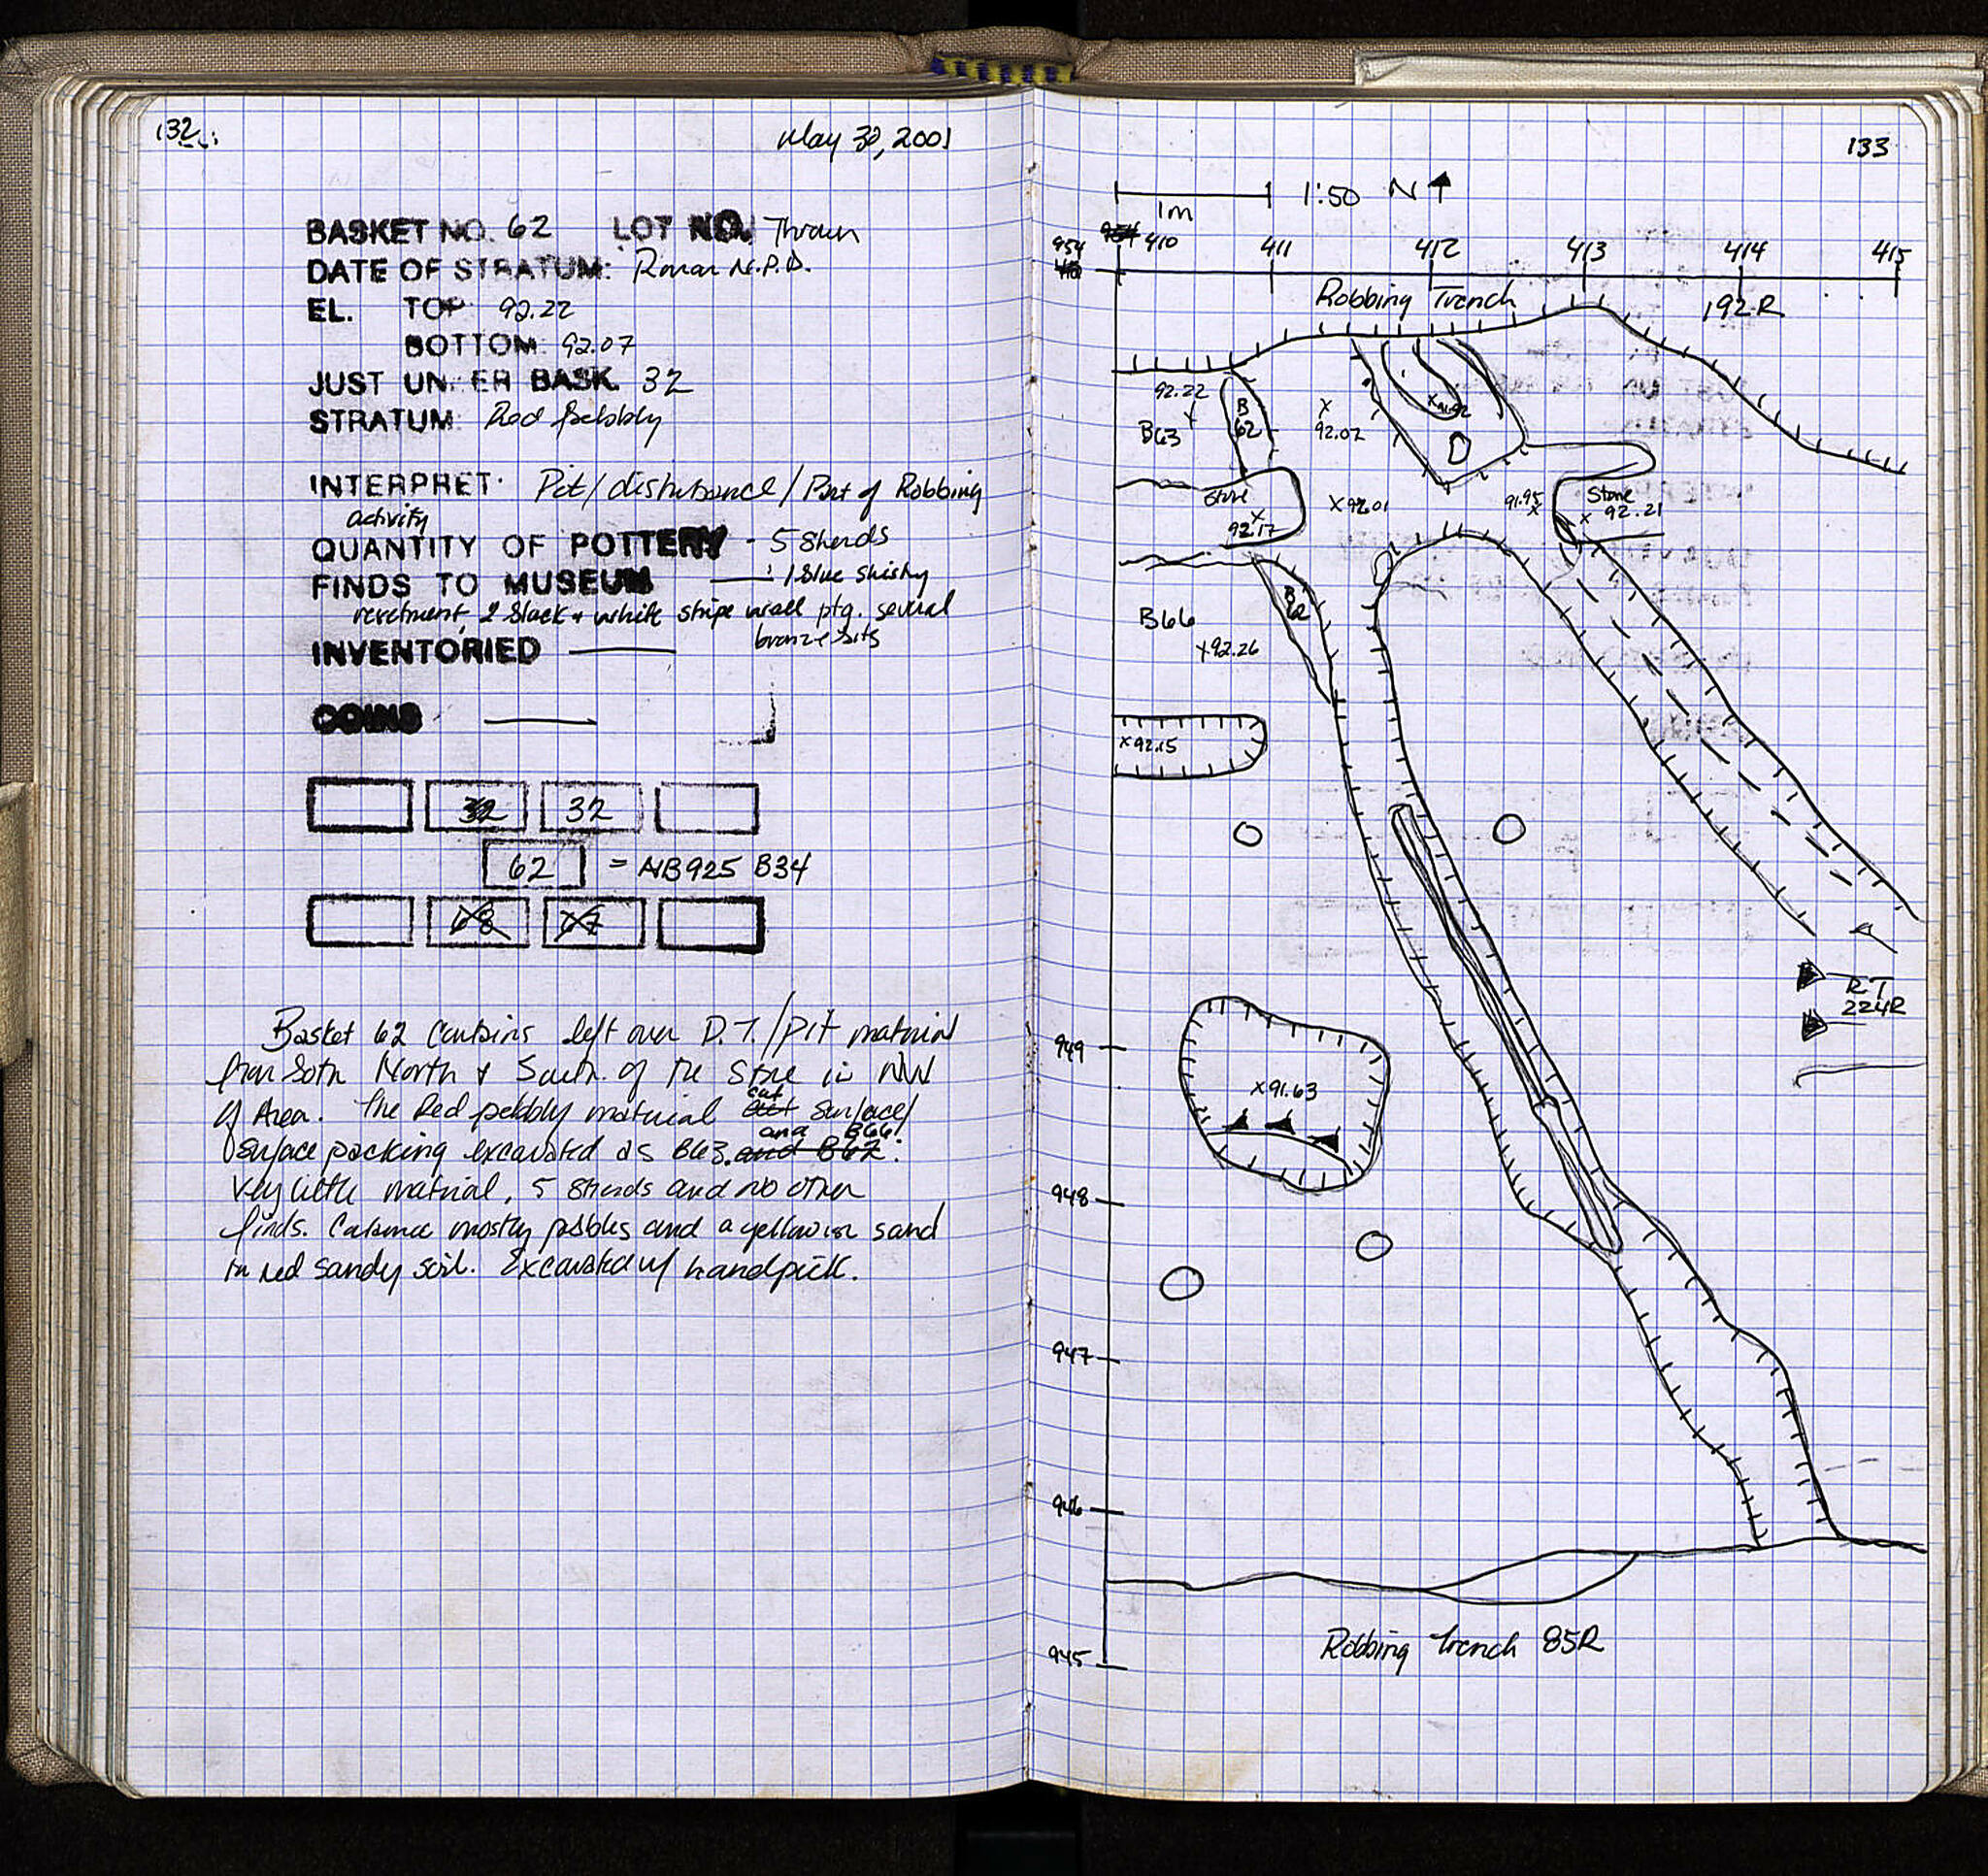 132
May 30, 2001
BASKET NO. 62 LOT NO. Thrown
DATE OF STRATUM: Roman N.P.D.
EL. TOP 92.22
BOTTOM: 92.07
JUST UNDER BASK. 32
STRATUM: Red pebbly
INTERPRET: Pit/disturbance/Part of Robbing
activity
QUANTITY OF POTTERY - 5 sherds
FINDS TO MUSEUM 1 blue
revetment, 2 black + white stripe wall ptg. several
bronze bits
INVENTORIED
COINS
32 32
62 = NB925 B34
68 67
Basket 62 contains left over D.T./Pit material
from both North & South of the Stone in NW
of Area. The Red pebbly material cut surface/
surface packing excavated as B63 and B66. and B62.
Very little material, 5 sherds and no other
finds. mostly pebbles and a yellowish sand
in red sandy soil. Excavated w/ handpick.
133
1m 1:50 N
954 410 411 412 413 414 415
Robbing Trench 192R
92.22
B63
B
62
x
92.02
x
D
Stone
x
92.17
x92.01
91.95
x
Stone
x 92.21
B66
B
62
x92.26
x92.15
RT
224R
949
x91.63
948
947
946
945
Robbing Trench 85R